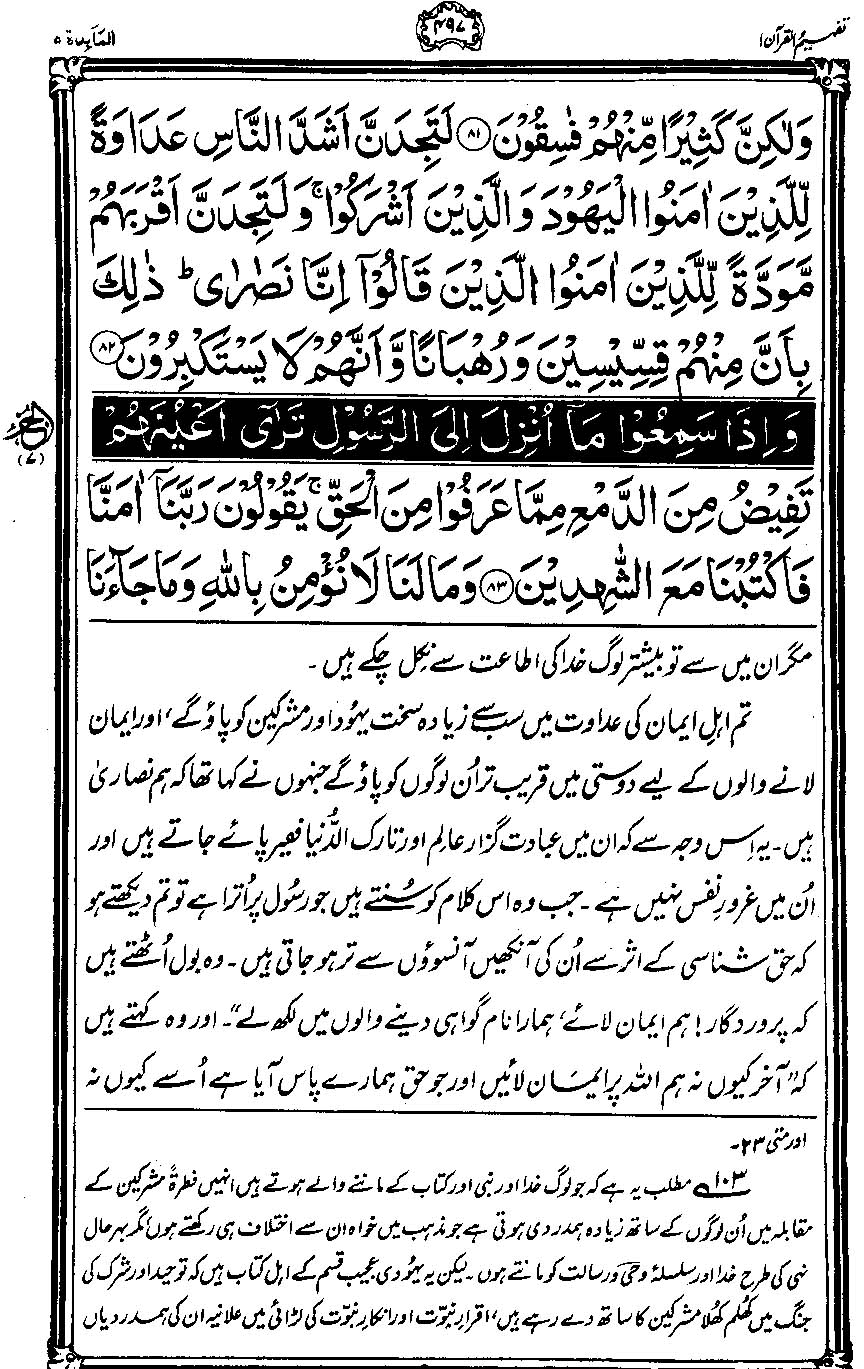 تفہیم القرآن ۱
۴۹۷
المآیدۃ ۵
وَلٰكِنَّ كَثِيْرًا مِّنْهُمْ فٰسِقُوْنَ ۝۸۱ لَتَجِدَنَّ اَشَدَّ النَّاسِ عَدَاوَةً
لِّلَّذِيْنَ اٰمَنُوا الْيَهُوْدَ وَالَّذِيْنَ اَشْرَكُوْا ۚ وَلَتَجِدَنَّ اَقْرَبَهُمْ
مَّوَدَّةً لِّلَّذِيْنَ اٰمَنُوا الَّذِيْنَ قَالُوْٓا اِنَّا نَصٰرٰى ؕ ذٰلِكَ
بِاَنَّ مِنْهُمْ قِسِّيْسِيْنَ وَرُهْبَانًا وَّاَنَّهُمْ لَا يَسْتَكْبِرُوْنَ ۝۸۲
وَاِذَا سَمِعُوْا مَآ اُنْزِلَ اِلَى الرَّسُوْلِ تَرٰٓى اَعْيُنَهُمْ
الجزء (۷)
تَفِيْضُ مِنَ الدَّمْعِ مِمَّا عَرَفُوْا مِنَ الْحَقِّ ۚ يَقُوْلُوْنَ رَبَّنَآ اٰمَنَّا
فَاكْتُبْنَا مَعَ الشّٰهِدِيْنَ ۝۸۳ وَمَا لَنَا لَا نُؤْمِنُ بِاللّٰهِ وَمَا جَآءَنَا
مگر ان میں سے تو بیشتر لوگ خدا کی اطاعت سے نکل چکے ہیں۔
تم اہلِ ایمان کی عداوت میں سب سے زیادہ سخت یہود اور مشرکین کو پاؤ گے، اور ایمان
لانے والوں کے لیے دوستی میں قریب تر اُن لوگوں کو پاؤ گے جنہوں نے کہا تھا کہ ہم نصاریٰ
ہیں۔ یہ اِس وجہ سے کہ ان میں عبادت گزار عالم اور تارک الدُّنیا فقیر پائے جاتے ہیں اور
اُن میں غرورِ نفس نہیں ہے۔ جب وہ اس کلام کو سُنتے ہیں جو رسُول پر اُترا ہے تو تم دیکھتے ہو
کہ حق شناسی کے اثر سے اُن کی آنکھیں آنسوؤں سے تر ہو جاتی ہیں۔ وہ بول اُٹھتے ہیں
کہ پروردگار! ہم ایمان لائے، ہمارا نام گواہی دینے والوں میں لکھ لے“۔ اور وہ کہتے ہیں
کہ ”آخر کیوں نہ ہم اللہ پر ایمان لائیں اور جو حق ہمارے پاس آیا ہے اُسے کیوں نہ
اور متی ۲۳۔
۱۰۳ مطلب یہ ہے کہ جو لوگ خدا اور نبی اور کتاب کے ماننے والے ہوتے ہیں انہیں فطرۃً مشرکین کے
مقابلہ میں اُن لوگوں کے ساتھ زیادہ ہمدردی ہوتی ہے جو مذہب میں خواہ ان سے اختلاف ہی رکھتے ہوں، مگر بہرحال
نہی کی طرح خدا اور سلسلۂ وحی و رسالت کو مانتے ہوں۔ لیکن یہ یہُودی عجیب قسم کے اہل کتاب ہیں کہ توحید اور شرک کی
جنگ میں کھُلم کھُلا مشرکین کا ساتھ دے رہے ہیں، اقرارِ نبوّت اور انکارِ نبوّت کی لڑائی میں علانیہ ان کی ہمدردیاں